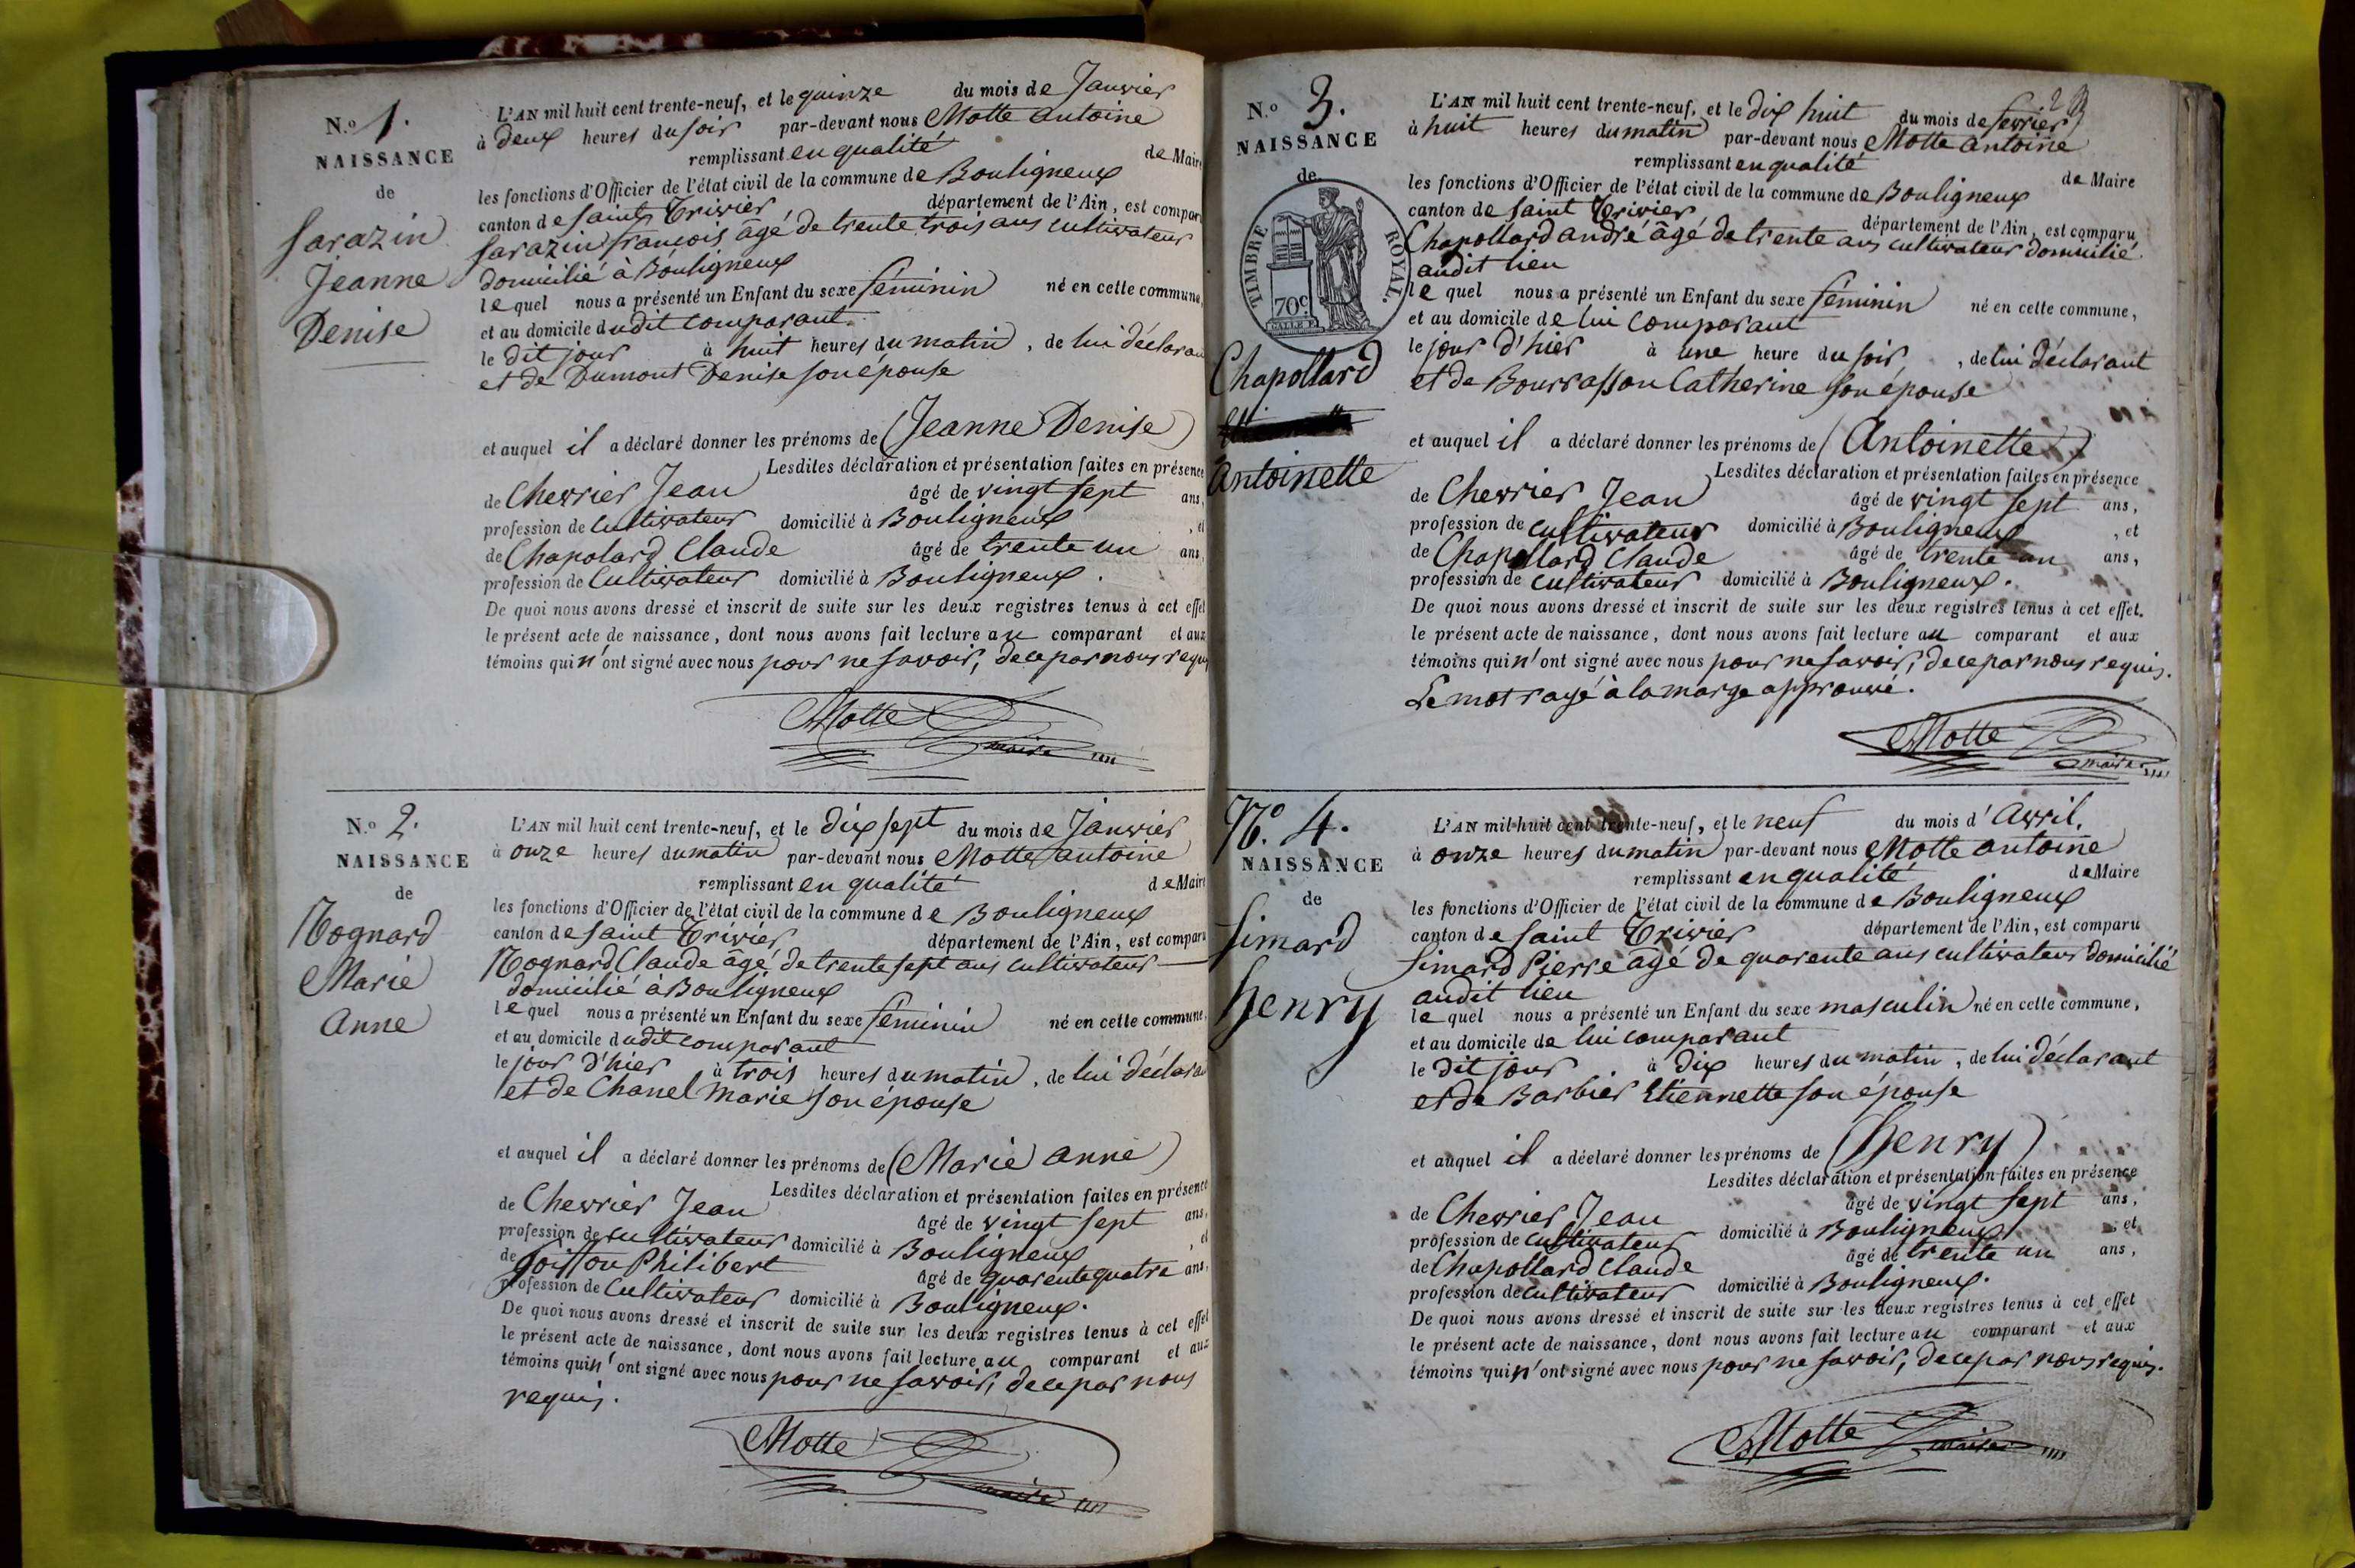 N.º 1.
NAISSANCE
de
Sarazin
Jeanne
Denise
L'AN mil huit cent trente-neuf, et le quinze du mois de Janvier
à deux heures du soir par-devant nous Motte antoine
remplissant en qualité de Maire
les fonctions d'Officier de l'état civil de la commune de Bouligneux
canton de saint Trivier département de l'Ain, est compar
Sarazin françois âgé de trente trois ans cultivateur
domicilié à Bouligneux
le quel nous a présenté un Enfant du sexe féminin né en cette commune,
et au domicile dudit comparant
le dit jour à huit heures du matin, de lui déclaran
et de Dumont Denise son épouse
et auquel il a déclaré donner les prénoms de (Jeanne Denise)
Lesdites déclaration et présentation faites en présence
de Chevrier Jean âgé de vingt sept ans,
profession de Cultivateur domicilié à Bouligneux, et
de Chapolard Claude âgé de trente un ans,
profession de Cultivateur domicilié à Bouligneux.
De quoi nous avons dressé et inscrit de suite sur les deux registres tenus à cet effet
le présent acte de naissance, dont nous avons fait lecture au comparant et aux
témoins qui n'ont signé avec nous pour ne savoir, de ce par nous requis
Motte
maire
N.º 2.
NAISSANCE
de
Nognard
Marie
Anne
L'AN mil huit cent trente-neuf, et le dix sept du mois de Janvier
à onze heures du matin par-devant nous Motte antoine
remplissant en qualité de Maire
les fonctions d'Officier de l'état civil de la commune de Bouligneux
canton de saint Trivier département de l'Ain, est comparu
Nognard Claude âgé de trente sept ans cultivateur
domicilié à Bouligneux
le quel nous a présenté un Enfant du sexe féminin né en cette commune,
et au domicile dudit comparant
le jour d'hier à trois heures du matin, de lui déclara
et de Chanel Marie son épouse
et auquel il a déclaré donner les prénoms de (Marie anne)
Lesdites déclaration et présentation faites en présence
de Chevrier Jean âgé de vingt sept ans,
profession de cultivateur domicilié à Bouligneux, et
de Philibert âgé de quarente quatre ans,
profession de Cultivateur domicilié à Bouligneux.
De quoi nous avons dressé et inscrit de suite sur les deux registres tenus à cet effet
le présent acte de naissance, dont nous avons fait lecture au comparant et aux
témoins qui n'ont signé avec nous pour ne savoir, de ce par nous
requis.
Motte
maire
N.º 3.
NAISSANCE
de
TIMBRE ROYAL.
70 c.
Chapollard
Antoinette
L'AN mil huit cent trente-neuf, et le dix huit du mois de fevrier
à huit heures du matin par-devant nous Motte antoine
remplissant en qualité de Maire
les fonctions d'Officier de l'état civil de la commune de Bouligneux
canton de saint Trivier département de l'Ain, est comparu
Chapollard andré âgé de trente ans cultivateur domicilié
audit lieu
le quel nous a présenté un Enfant du sexe féminin né en cette commune,
et au domicile de lui comparant
le jour d'hier à une heure du soir, de lui déclarant
et de Bourrasson Catherine son épouse
et auquel il a déclaré donner les prénoms de (Antoinette)
Lesdites déclaration et présentation faites en présence
de Chevrier Jean âgé de vingt sept ans,
profession de cultivateur domicilié à Bouligneux, et
de Chapollard Claude âgé de trente un ans,
profession de cultivateur domicilié à Bouligneux.
De quoi nous avons dressé et inscrit de suite sur les deux registres tenus à cet effet.
le présent acte de naissance, dont nous avons fait lecture au comparant et aux
témoins qui n'ont signé avec nous pour ne savoir, de ce par nous requis.
Le mot rayé à la marge approuvé.
Motte
maire
Nº. 4.
NAISSANCE
de
Simard
henry
L'AN mil huit cent trente-neuf, et le neuf du mois d'Avril,
à onze heures du matin par-devant nous Motte antoine
remplissant en qualité de Maire
les fonctions d'Officier de l'état civil de la commune de Bouligneux
canton de saint Trivier département de l'Ain, est comparu
Simard Pierre âgé de quarente ans cultivateur domicilié
audit lieu
le quel nous a présenté un Enfant du sexe masculin né en cette commune,
et au domicile de lui comparant
le dit jour à dix heures du matin, de lui déclarant
et de Barbier Etiennette son épouse
et auquel il a déclaré donner les prénoms de (henry)
Lesdites déclaration et présentation faites en présence
de Chevrier Jean âgé de vingt sept ans,
profession de cultivateur domicilié à Bouligneux, et
de Chapollard Claude âgé de trente un ans,
profession de cultivateur domicilié à Bouligneux.
De quoi nous avons dressé et inscrit de suite sur les deux registres tenus à cet effet
le présent acte de naissance, dont nous avons fait lecture au comparant et aux
témoins qui n'ont signé avec nous pour ne savoir, de ce par nous requis.
Motte
maire